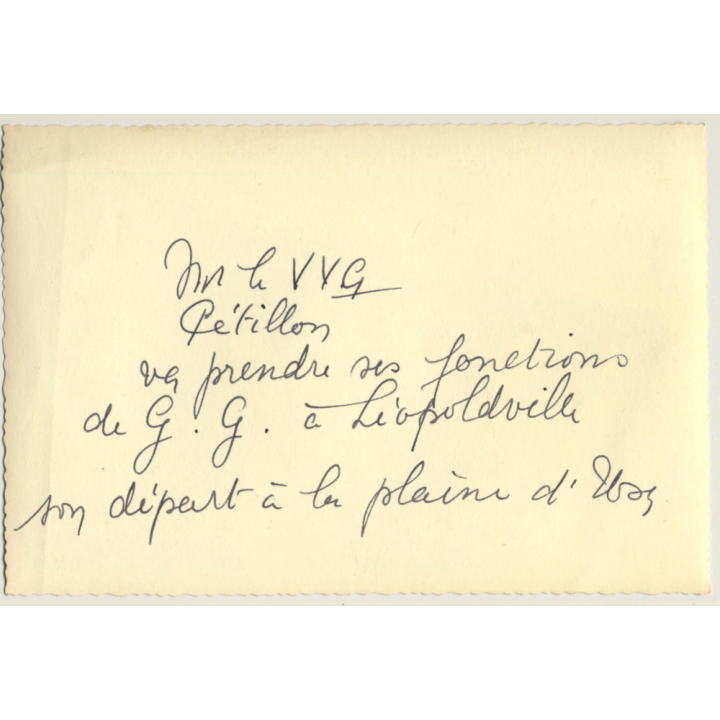 Mr le VVG
Pétillon
va prendre ses fonctions
de G. G. à Léopoldville
son départ à la plaine d'Usa